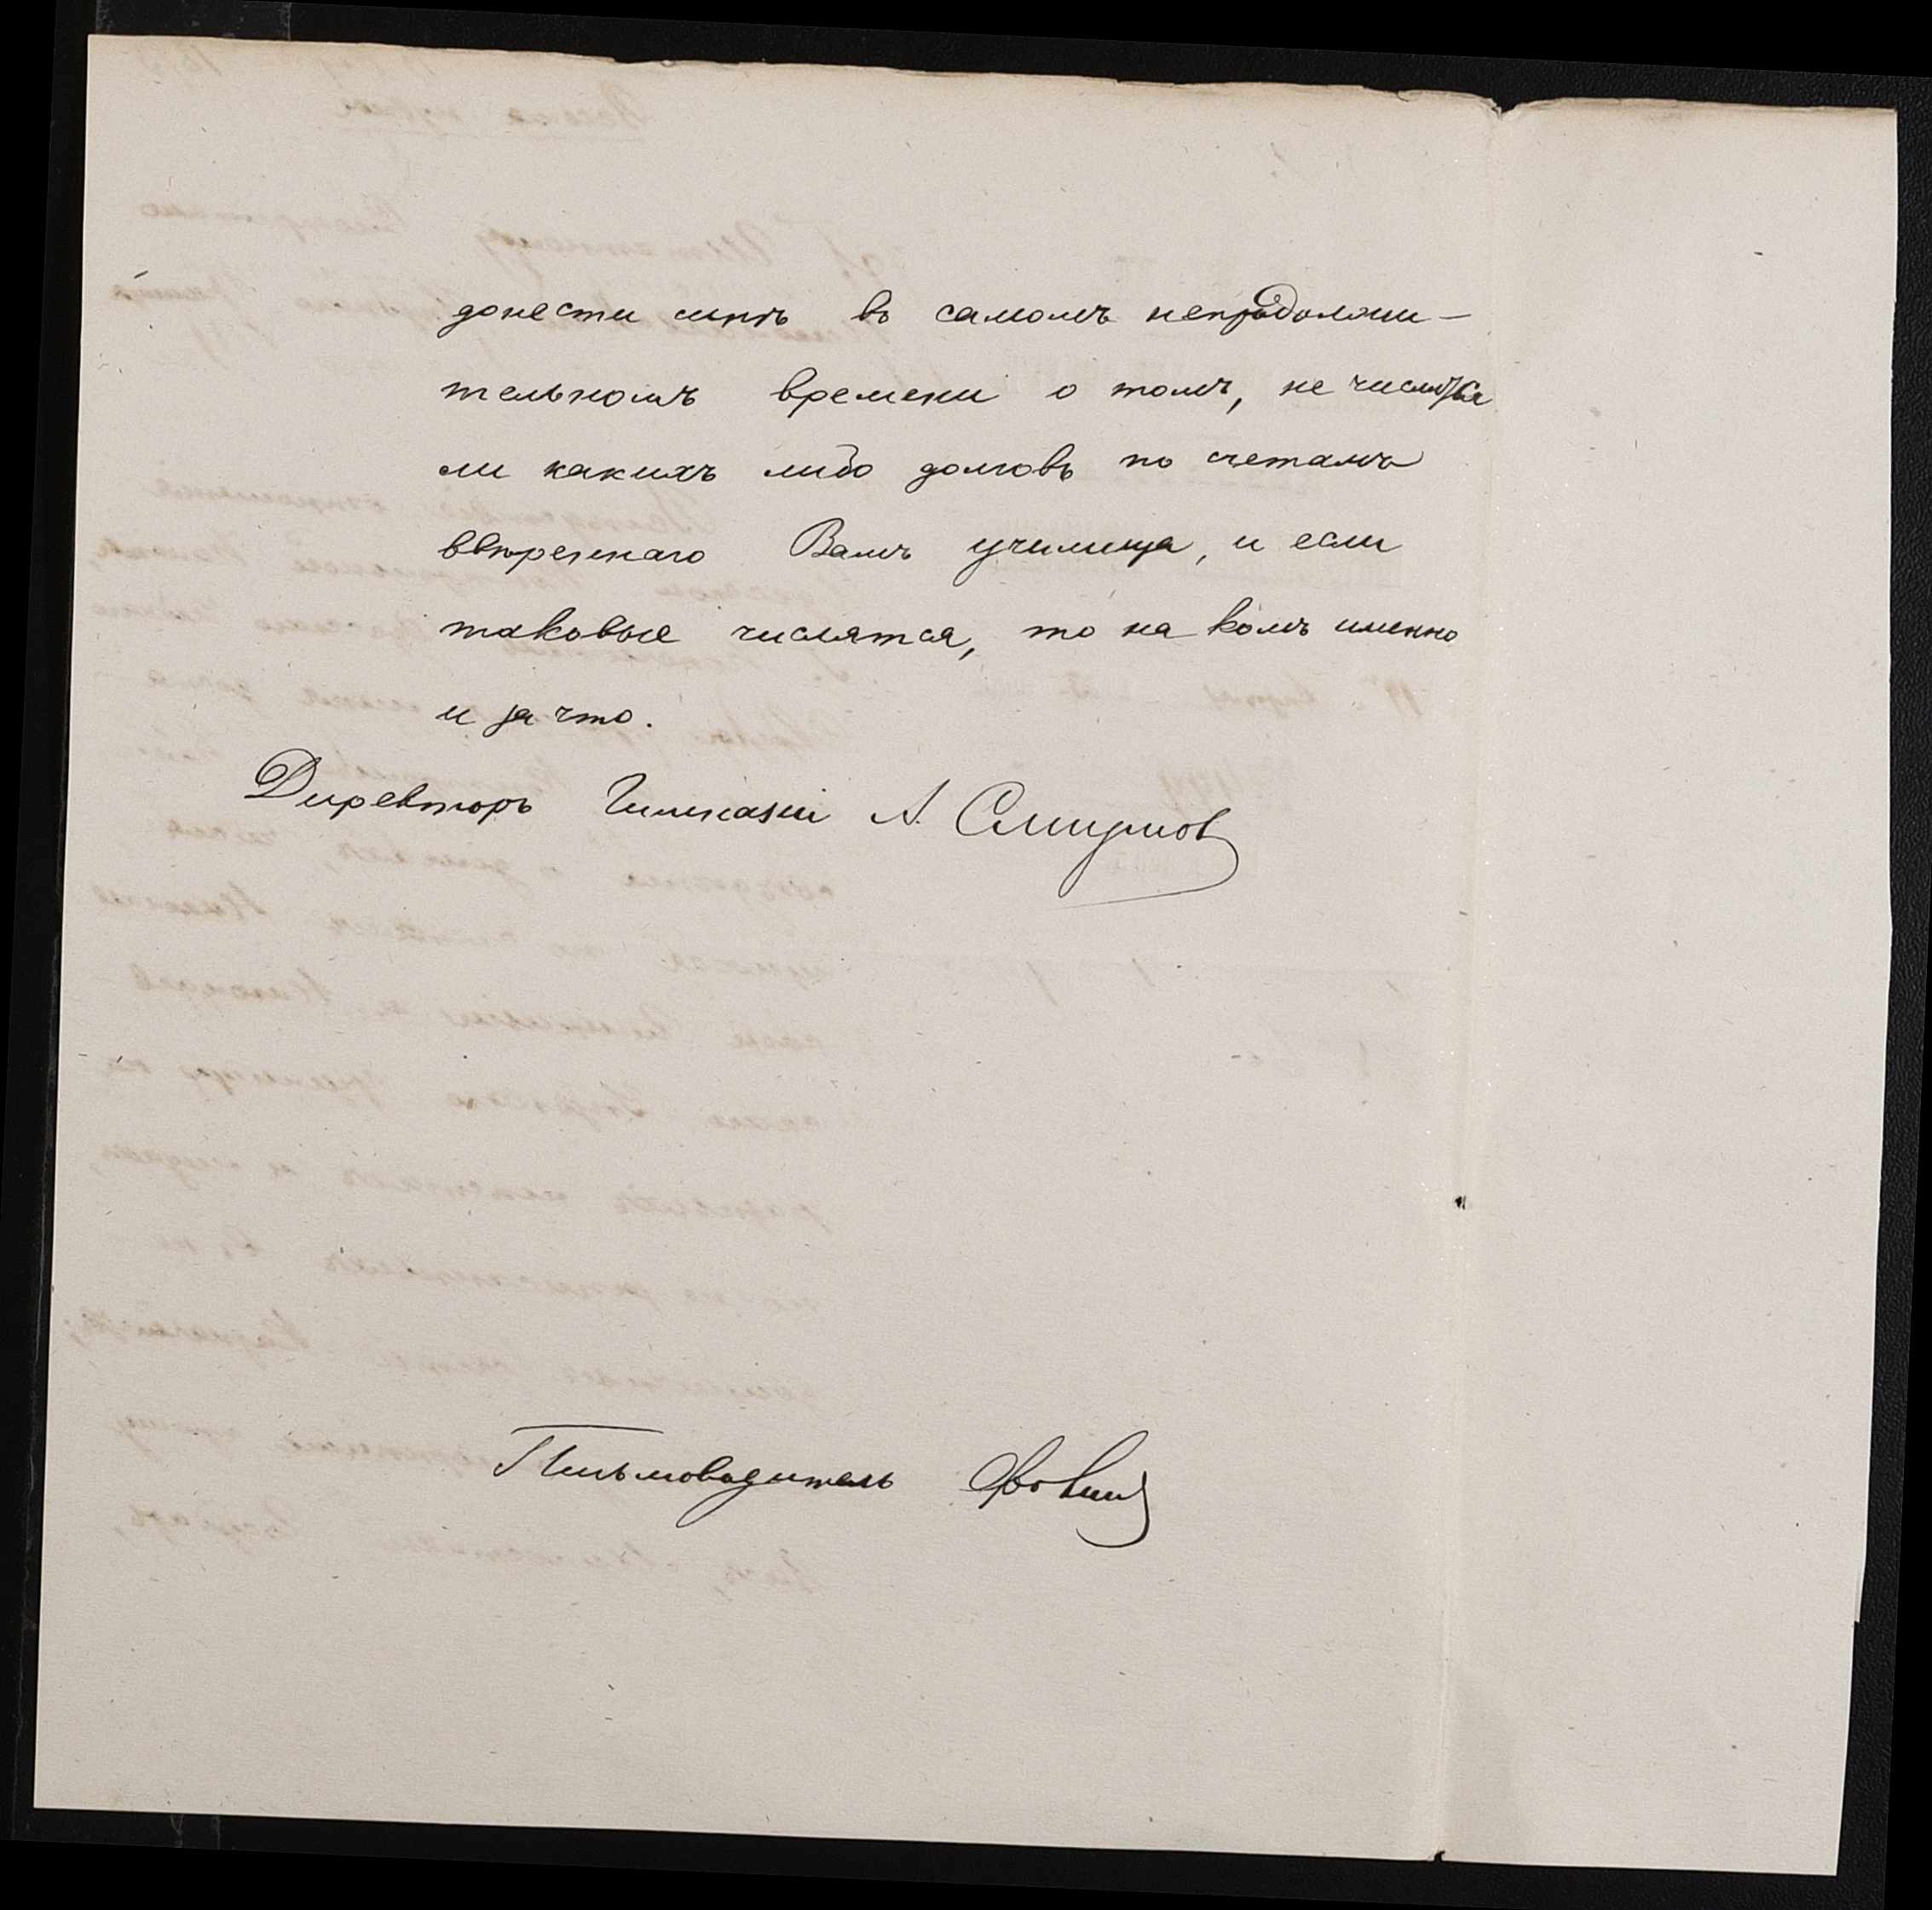 донести мнѣ въ самомъ непродолжи-
тельномъ времени о томъ, не числится
ли какихъ либо долговъ по счетамъ
ввѣреннаго Вамъ училища, и если
таковые числятся, то на комъ именно
и за что.
Директоръ Гимназіи А. Смирнов
Письмоводитель